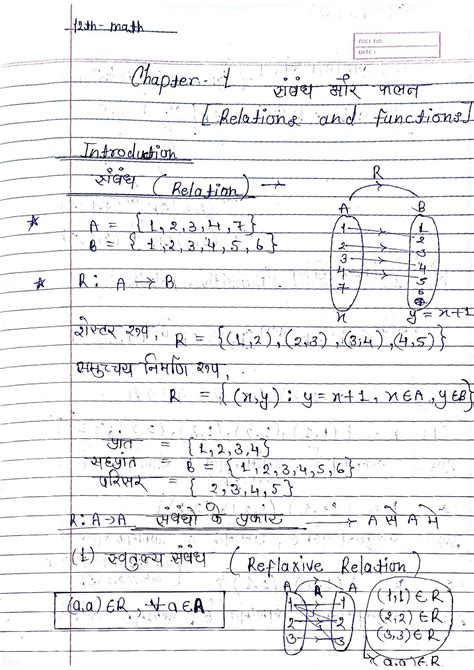 12th- math
PAGE NO.
DATE :
Chapter- 1 संबंध और फलन
[Relations and functions]
Introduction
संबंध (Relation) →
R
A B
* A = {1,2,3,4,7}
B = {1,2,3,4,5,6}
* R: A → B
1 1
2 2
3 3
4 4
7 5
6
x y = x+1
रोस्टर रूप, R = {(1,2),(2,3),(3,4),(4,5)}
समुच्चय निर्माण रूप,
R = {(x,y) : y = x+1, x∈A, y∈B}
प्रांत = {1,2,3,4}
सहप्रांत = B = {1,2,3,4,5,6}
परिसर = {2,3,4,5}
R: A→A संबंधों के प्रकार → A से A में
(1) स्वतुल्य संबंध (Reflaxive Relation)
(a,a)∈R, ∀a∈A
A R A
1 1
2 2
3 3
(1,1)∈R
(2,2)∈R
(3,3)∈R
(a,a)∈R